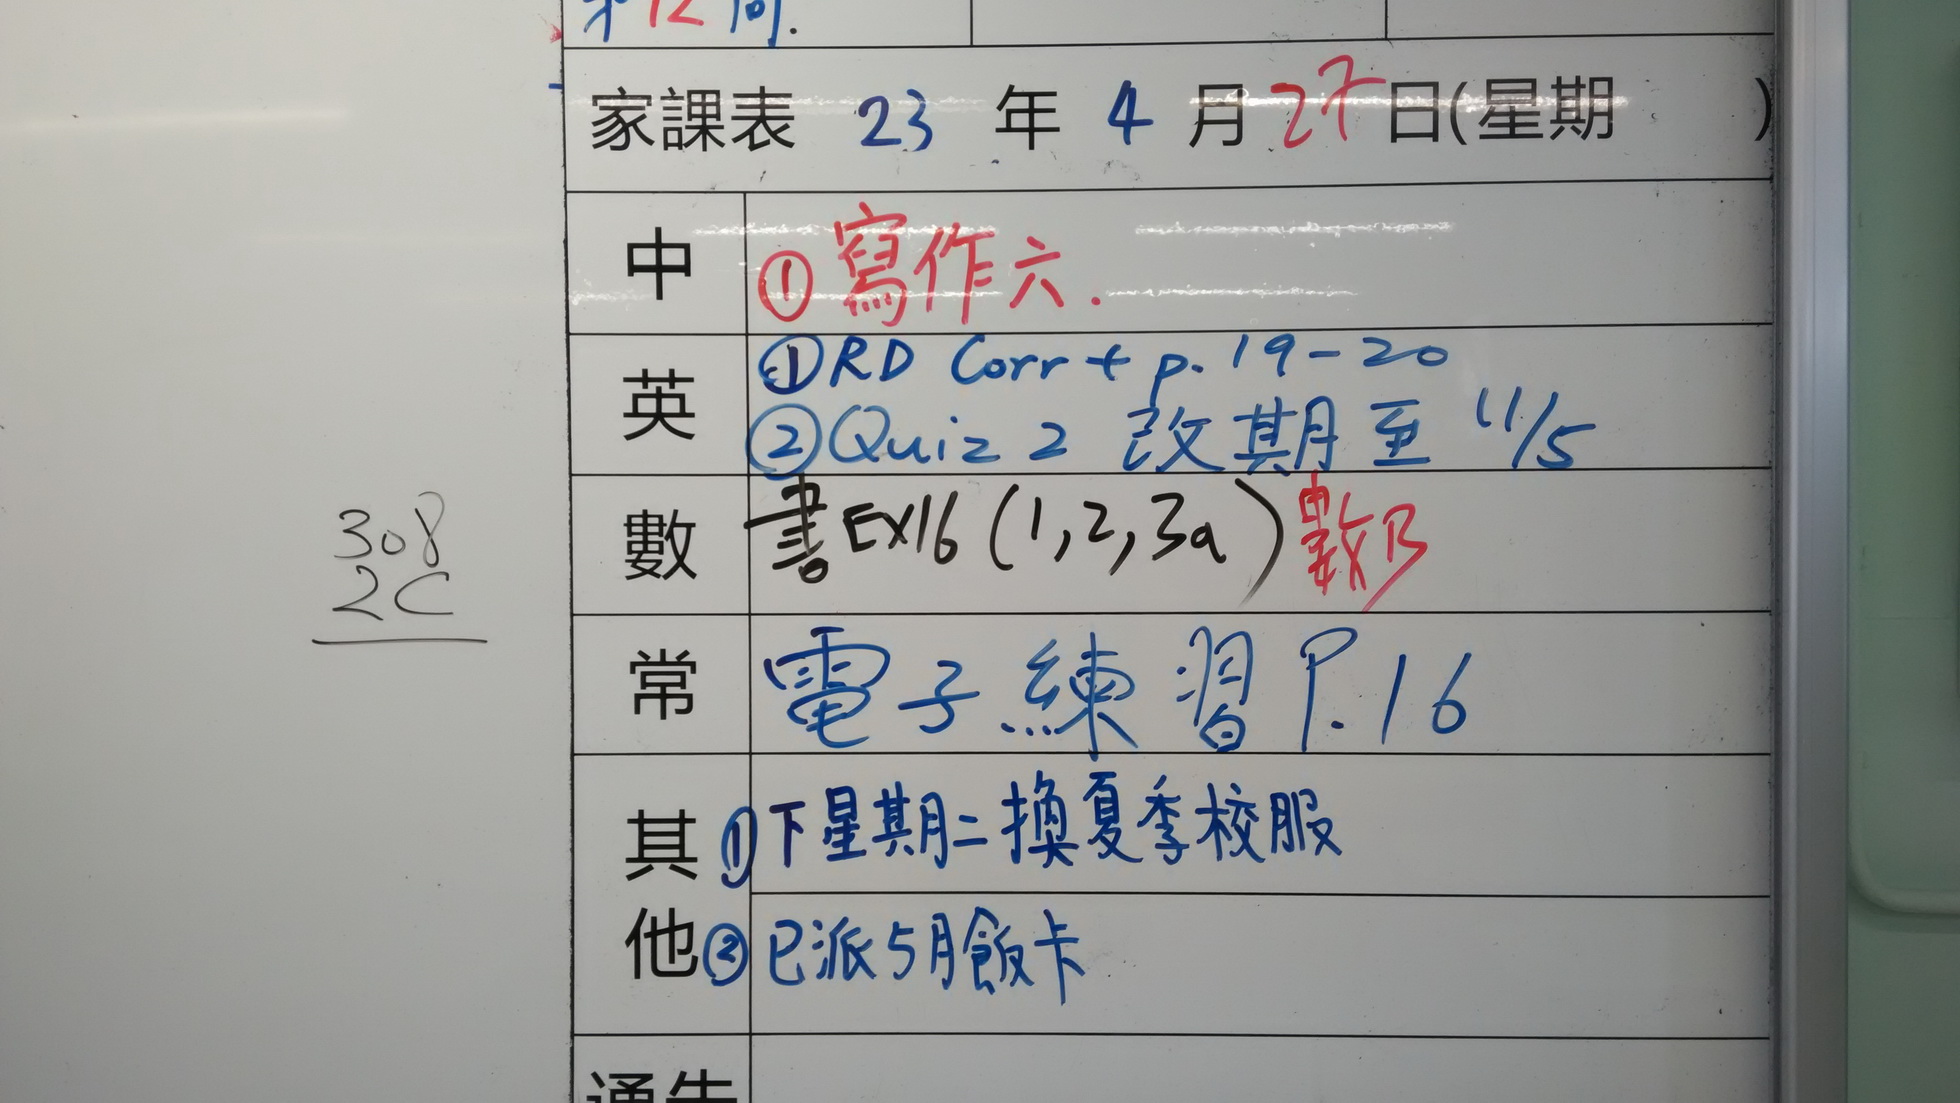 第12周.
家課表 23 年 4 月 27 日(星期 )
中 ①寫作六.
英 ①RD Corr + p. 19-20
②Quiz 2 改期至 11/5
數 書Ex16 (1, 2, 3a) 數B
308
2C
常 電子練習 P.16
其他 ①下星期二換夏季校服
②已派5月飯卡
通告